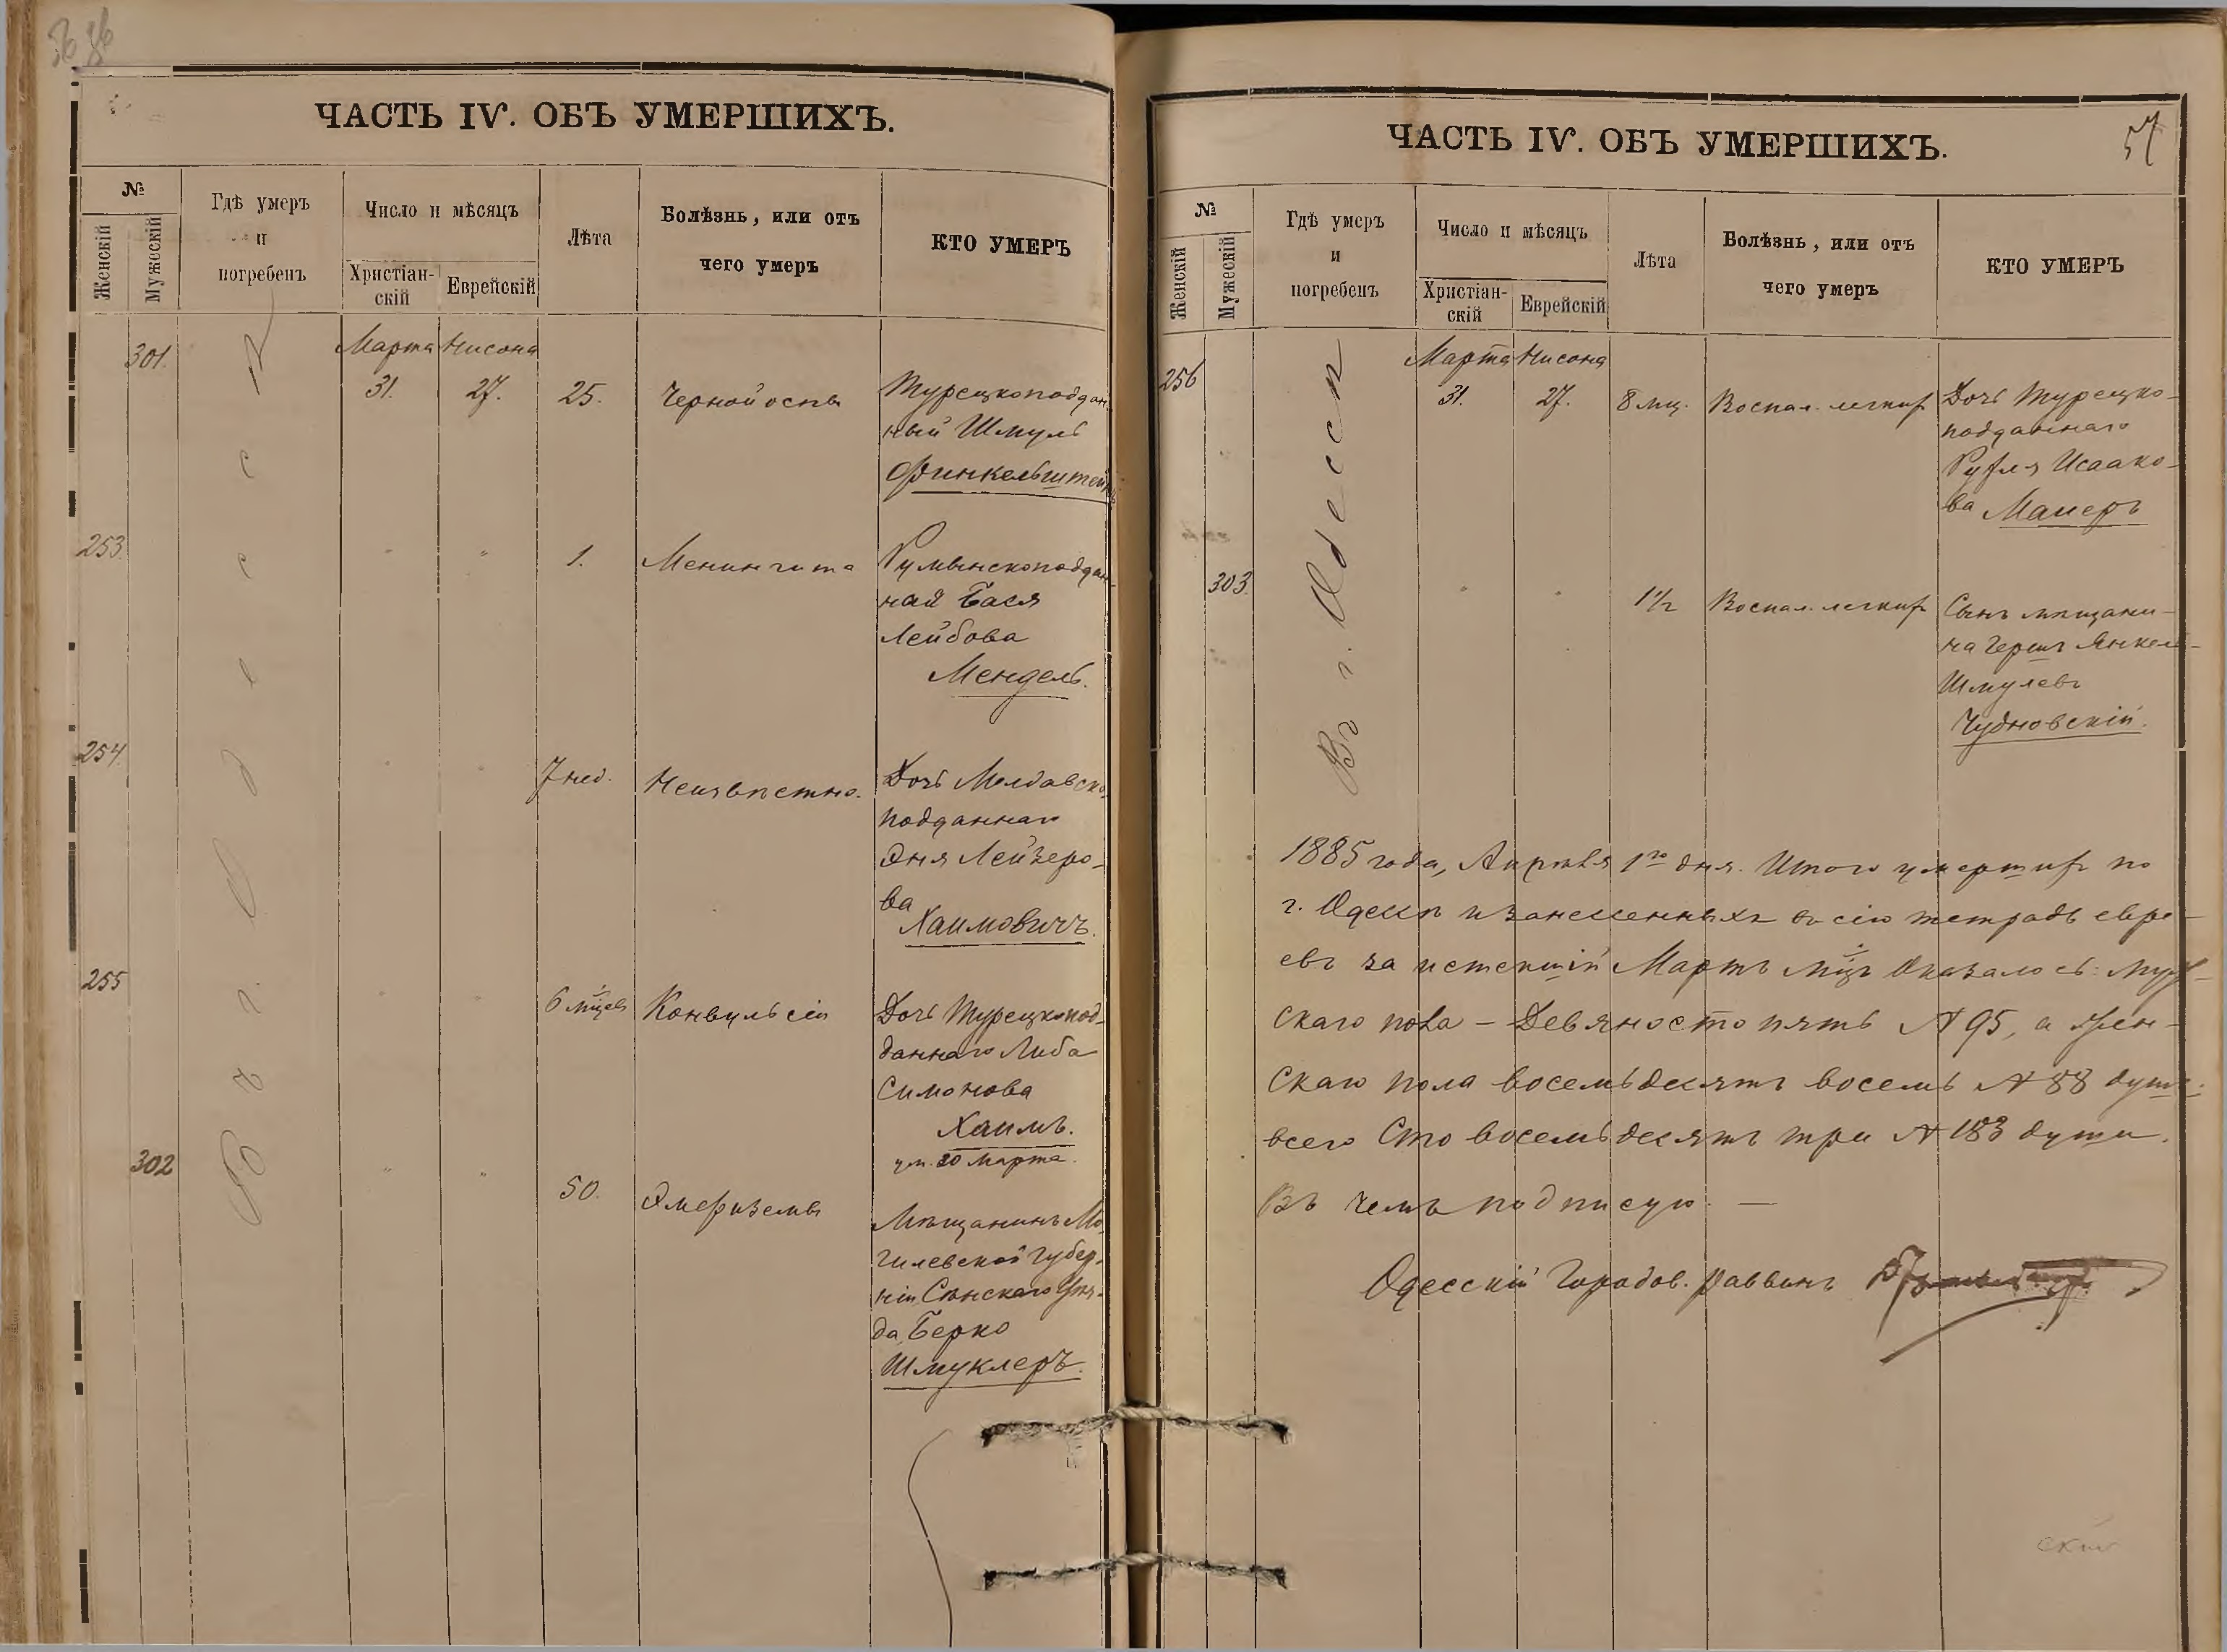 56
ЧАСТЬ IV. ОБЪ УМЕРШИХЪ.
№
Женскій
Мужескій
Гдѣ умеръ
и
погребенъ
Число и мѣсяцъ
Христіан-
скій
Еврейскій
Лѣта
Болѣзнь, или отъ
чего умеръ
КТО УМЕРЪ
Въ г. Одессѣ
301.
Марта Нисона
31. 27. 25. Черной оспы
Турецкоподдан-
ный Шмуль
Финкельштейнъ
253. " " 1. Менингита
Румынскоподдан-
ная Бася
Лейбова
Мендель.
254. " " 7 нед. Неизвѣстно.
Дочь Молдавско-
подданнаго
Эня Лейзеро-
ва
Хаимовичъ.
255 " " 6 мѣцев Конвульсіи
Дочь Турецкопод-
даннаго Либа
Симонова
Хаимъ.
ум. 30 Марта.
302 " " 50. Эмфиземы
Мѣщанинъ Мо-
гилевской губер-
ніи Сѣнскаго уѣз-
да, Берко
Шмуклеръ.
57
ЧАСТЬ IV. ОБЪ УМЕРШИХЪ.
№
Женскій
Мужескій
Гдѣ умеръ
и
погребенъ
Число и мѣсяцъ
Христіан-
скій
Еврейскій
Лѣта
Болѣзнь, или отъ
чего умеръ
КТО УМЕРЪ
Въ г. Одессѣ
256
Марта Нисона
31. 27. 8 мц. Воспал. легких
Дочь Турецко-
подданнаго
Рухля Исаако-
ва Маиеръ
303. " " 1 1/2 Воспал. легких
Сынъ мѣщани-
на Гершъ Янкель
Шмулевъ
Чудновскій.
1885 года, Апрѣля 1го дня. Итого умерших по
г. Одессѣ и занесенныхъ въ сію тетрадь евре-
евъ за истекшій Мартъ мцъ оказалось: муж-
скаго пола – Девяносто пять № 95, а жен-
скаго пола восемьдесятъ восемь № 88 душъ.
всего Сто восемьдесятъ три № 183 души.
Въ чемъ подписую. —
Одесскій Городов. Раввинъ